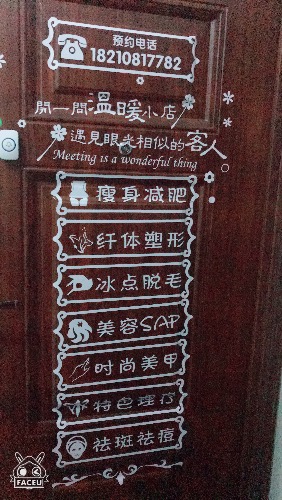 预约电话
18210817782
開一間温暖小店
遇見眼光相似的客人
Meeting is a wonderful thing
瘦身减肥
纤体塑形
冰点脱毛
美容SAP
时尚美甲
特色理疗
祛斑祛痘
FACEU